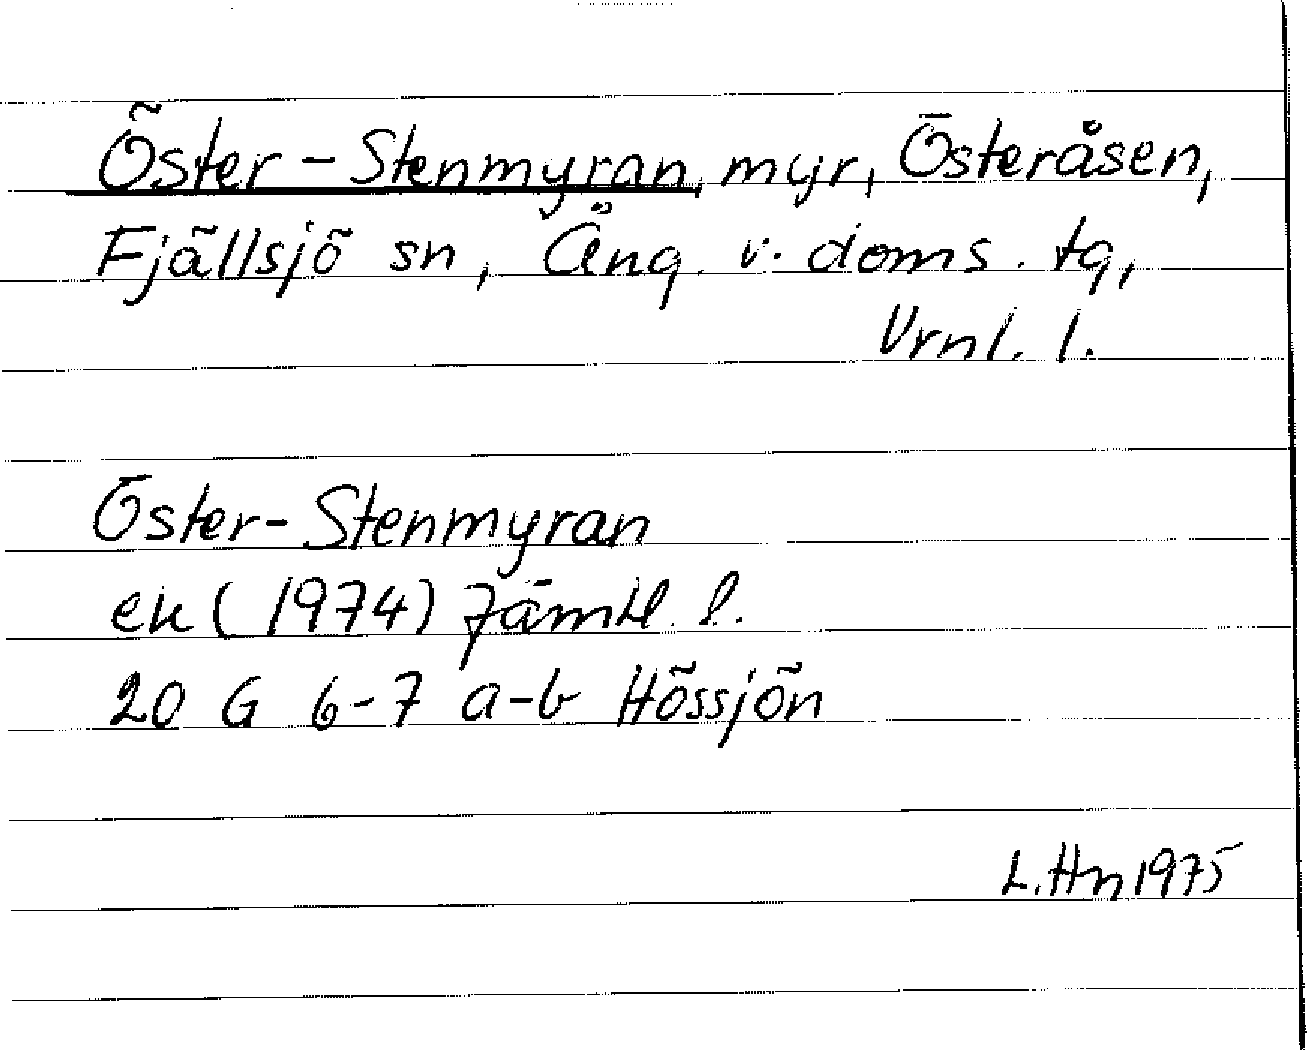 Öster-Stenmyran, myr, Österåsen,
Fjällsjö sn, Ång. v. doms. tg,
Vrnl. l.
Öster-Stenmyran
ek (1974) Jämtl. l.
20 G 6-7 a-b Hössjön
L. Hn 1975